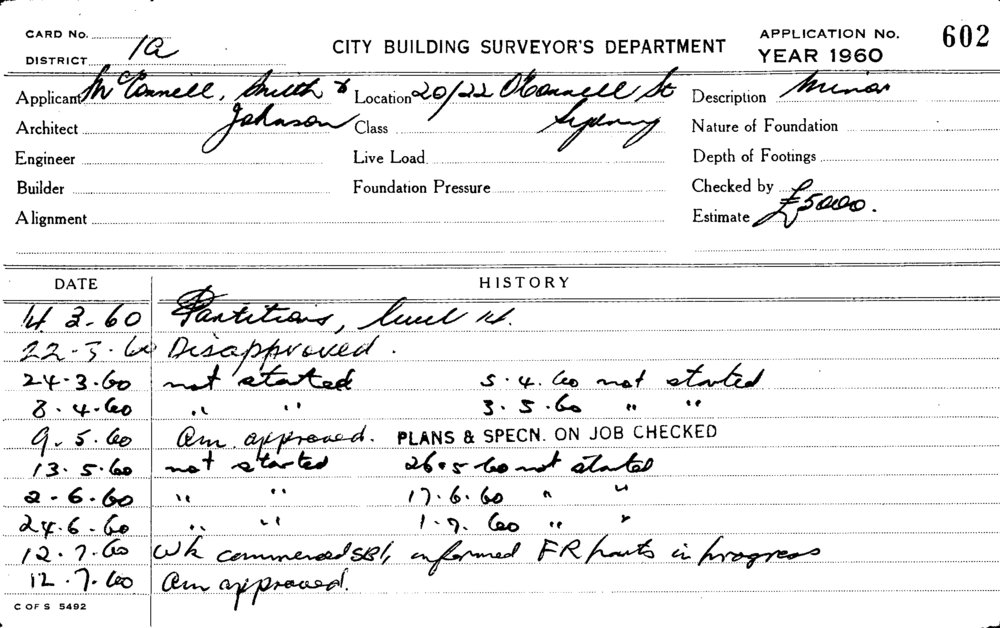 CARD No.
DISTRICT 1a
CITY BUILDING SURVEYOR'S DEPARTMENT
APPLICATION No. 602
YEAR 1960
Applicant McConnell, Smith &
Johnson
Location 20/22 O'Connell St
Sydney
Description Minor
Architect
Class
Nature of Foundation
Engineer
Live Load
Depth of Footings
Builder
Foundation Pressure
Checked by
Alignment
Estimate £5000.
DATE HISTORY
14 3-60 Partitions, level 14.
22-3-60 Disapproved.
24-3-60 not started 5.4.60 not started
8.4.60 " " 3.5.60 " "
9.5.60 Am. approved. PLANS & SPECN. ON JOB CHECKED
13.5.60 not started 26.5.60 not started
2-6-60 " " 17.6.60 " "
24.6.60 " " 1.7.60 " "
12.7.60 Wk commenced informed FR parts in progress
12.7.60 Am approved.
C OF S 5492